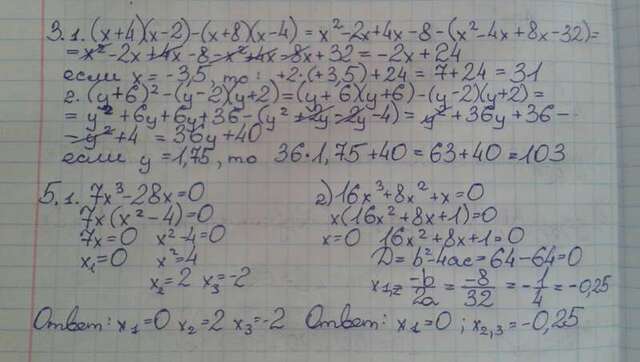 3.1. (x+4)(x-2)-(x+8)(x-4) = x²-2x+4x-8-(x²-4x+8x-32)=
= x²-2x+4x-8-x²+4x-8x+32 = -2x+24
если x = -3,5, то: +2·(+3,5)+24 = 7+24 = 31
2. (y+6)²-(y-2)(y+2)=(y+6)(y+6)-(y-2)(y+2)=
= y²+6y+6y+36-(y²+2y-2y-4) = y²+36y+36-
-y²+4 = 36y+40
если y = 1,75, то 36·1,75+40 = 63+40 = 103
5.1. 7x³-28x=0
7x(x²-4)=0
7x=0 x²-4=0
x₁=0 x²=4
x₂=2 x₃=-2
Ответ: x₁=0 x₂=2 x₃=-2
2) 16x³+8x²+x=0
x(16x²+8x+1)=0
x=0 16x²+8x+1=0
D=b²-4ac=64-64=0
x₁,₂=-b/2a=-8/32=-1/4=-0,25
Ответ: x₁=0; x₂,₃=-0,25